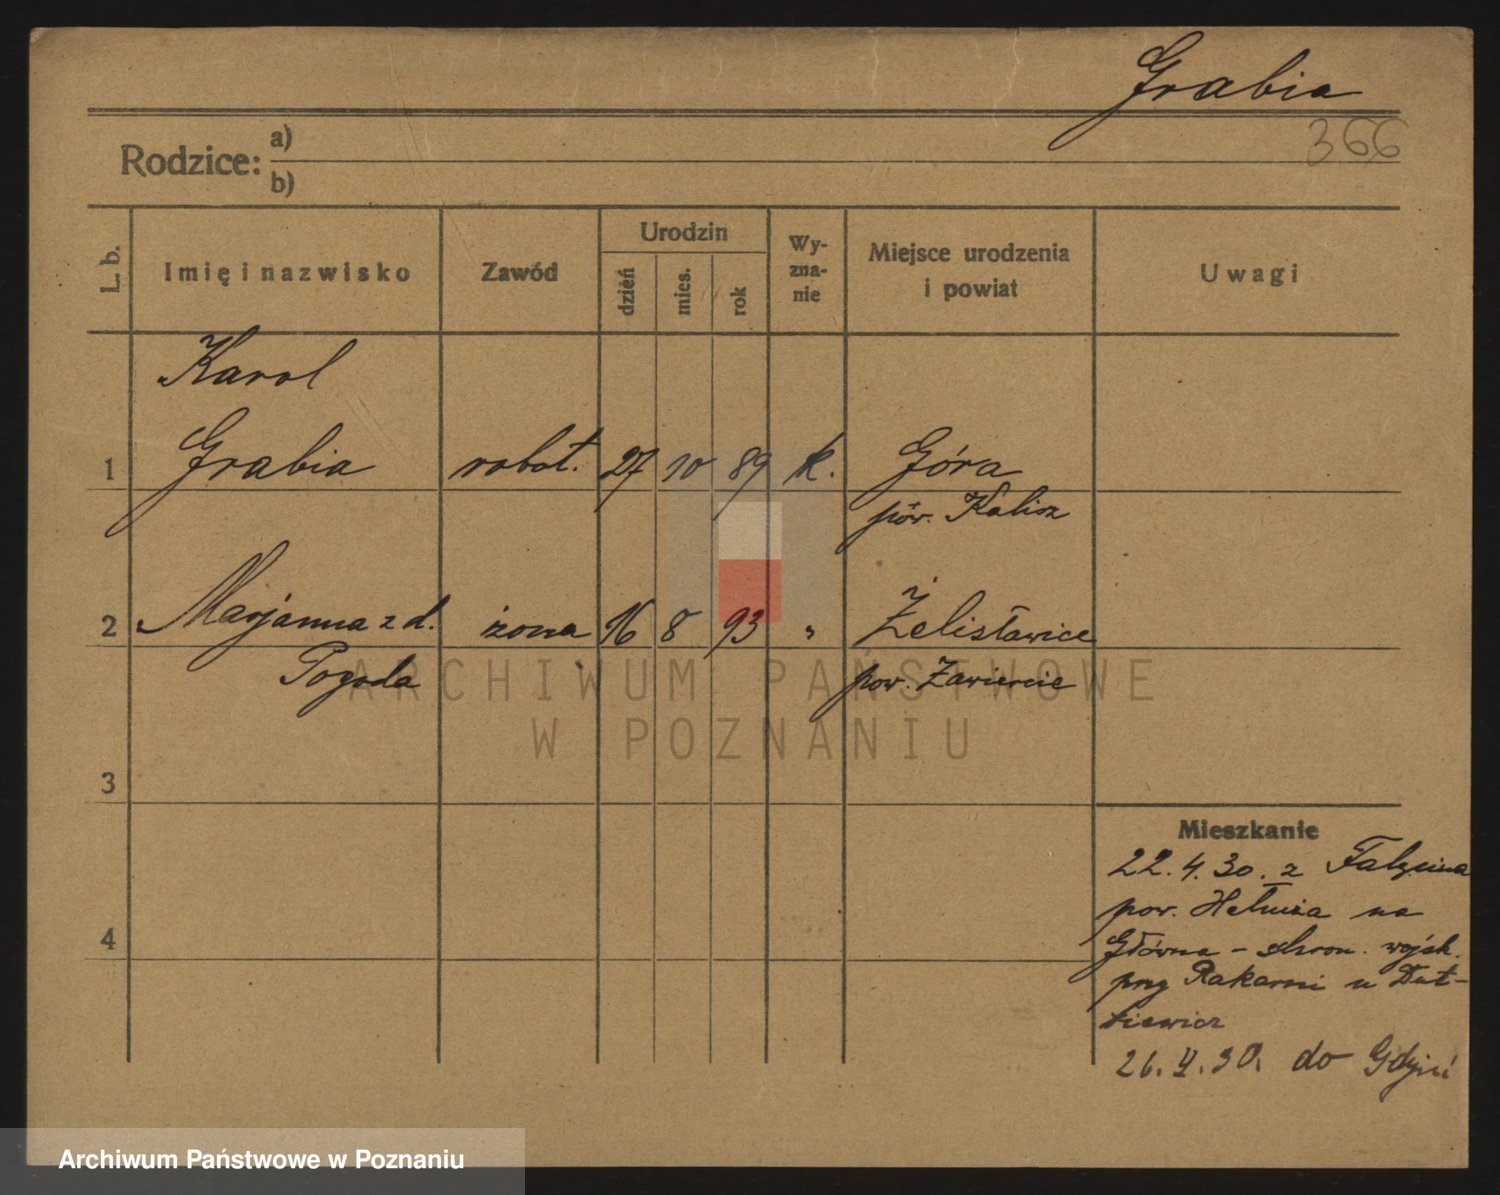 Grabia
366
Rodzice: a)
b)
L. b. Imię i nazwisko Zawód Urodzin dzień mies. rok Wyznanie Miejsce urodzenia i powiat Uwagi
Karol
1 Grabia robot. 27 10 89 k. Góra
pow. Kalisz
2 Marjanna z d. żona 16 8 93 " Żelisławice
Pogoda pow. Zawiercie
ARCHIWUM PAŃSTWOWE
W POZNANIU
3
Mieszkanie
22.4.30. z
pow. na
4 Główna - schron. wojsk.
przy Rakarni u Dut-
kiewicz
26.V.30. do Gdyni
Archiwum Państwowe w Poznaniu